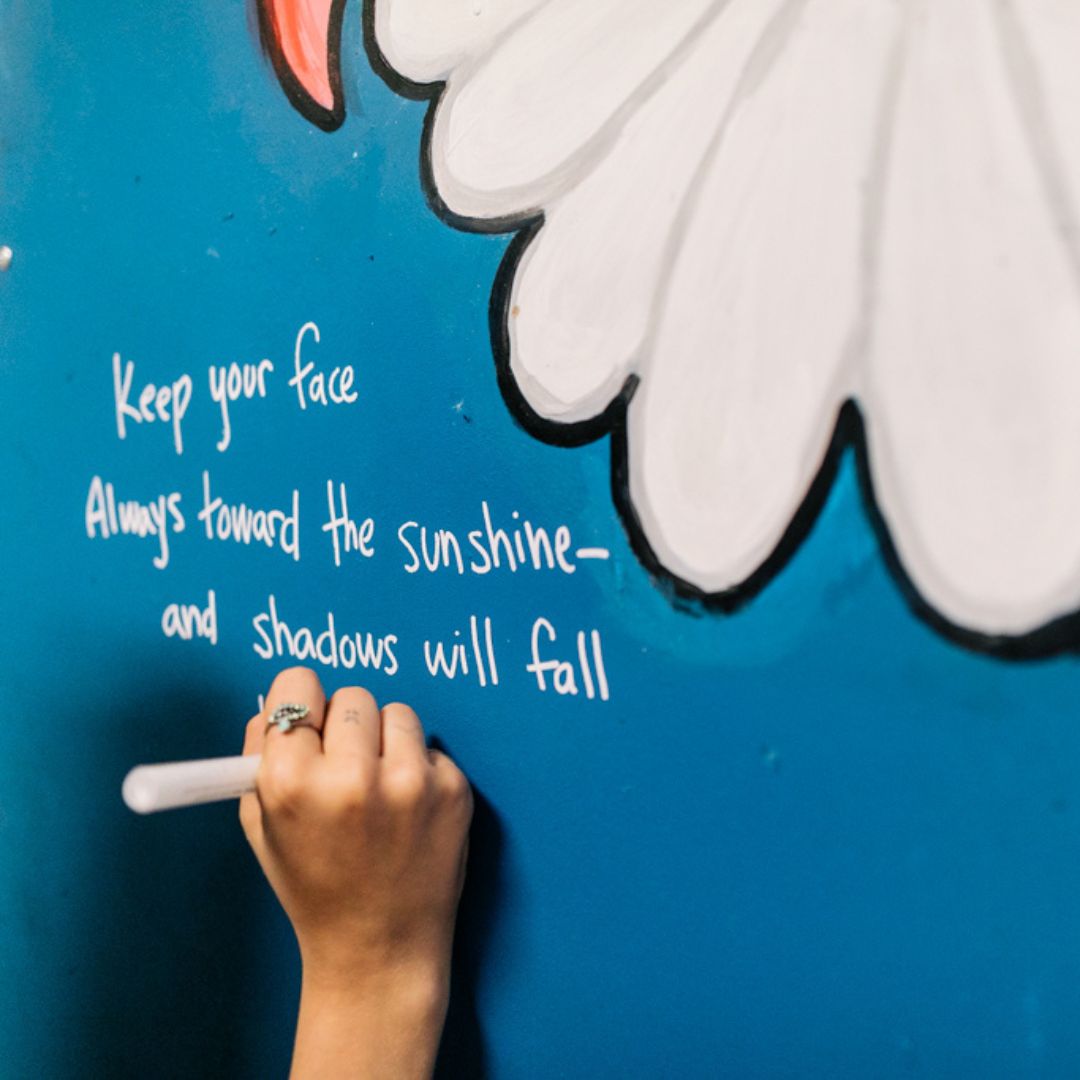 Keep your face
Always toward the sunshine—
and shadows will fall